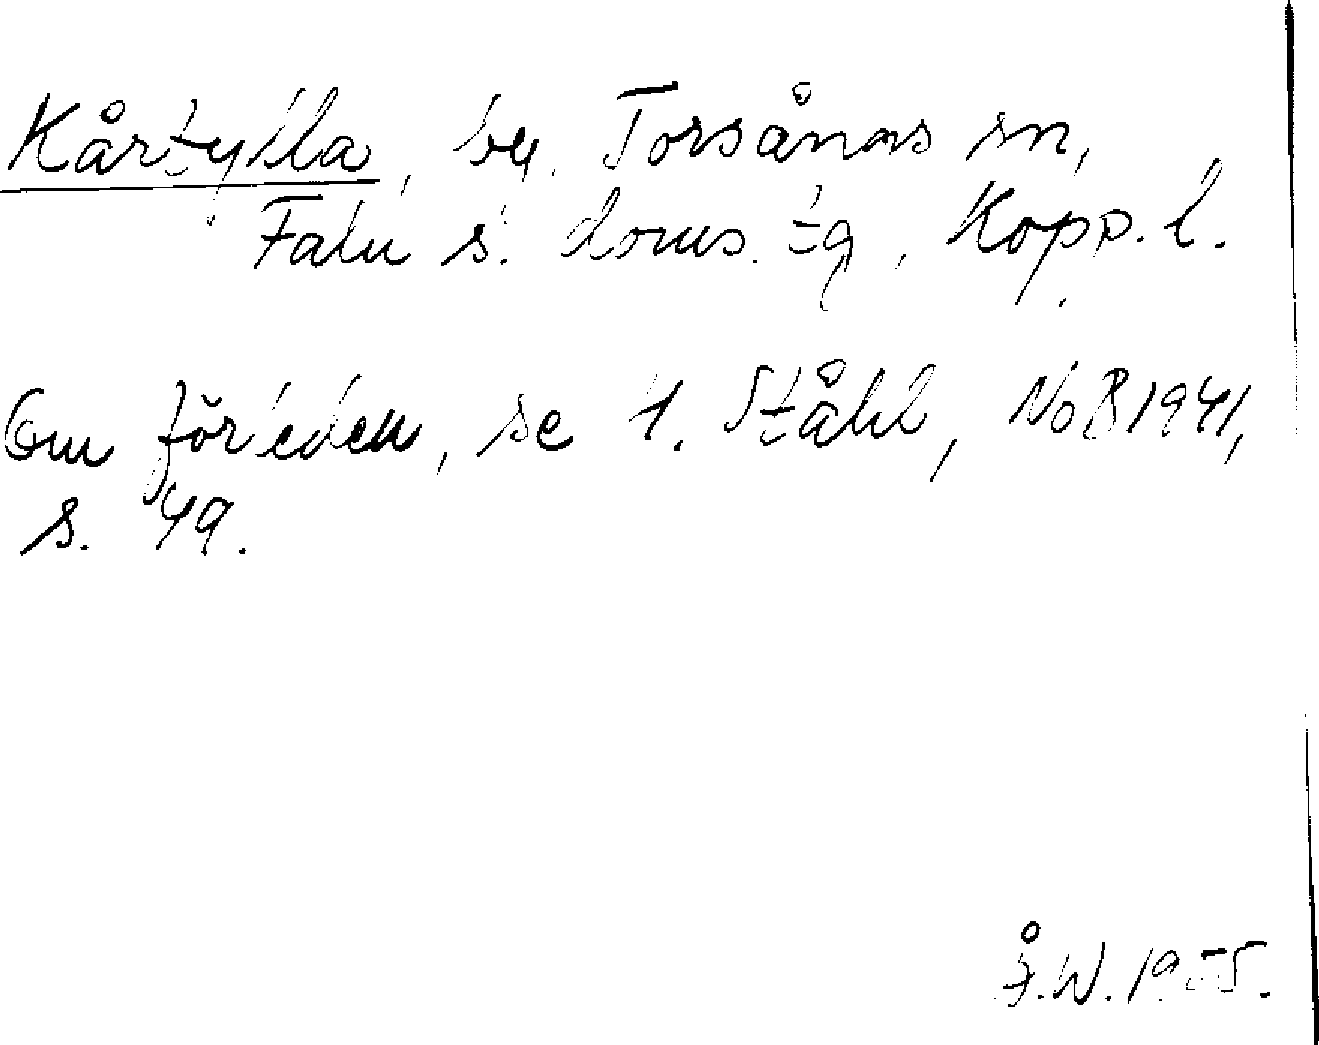 Kårtylla, by. Torsångs sn,
Falu s. doms. tg, Kopp. l.
Om förleden, se H. Ståhl, NoB 1941,
s. 49.
Å.W. 1955.